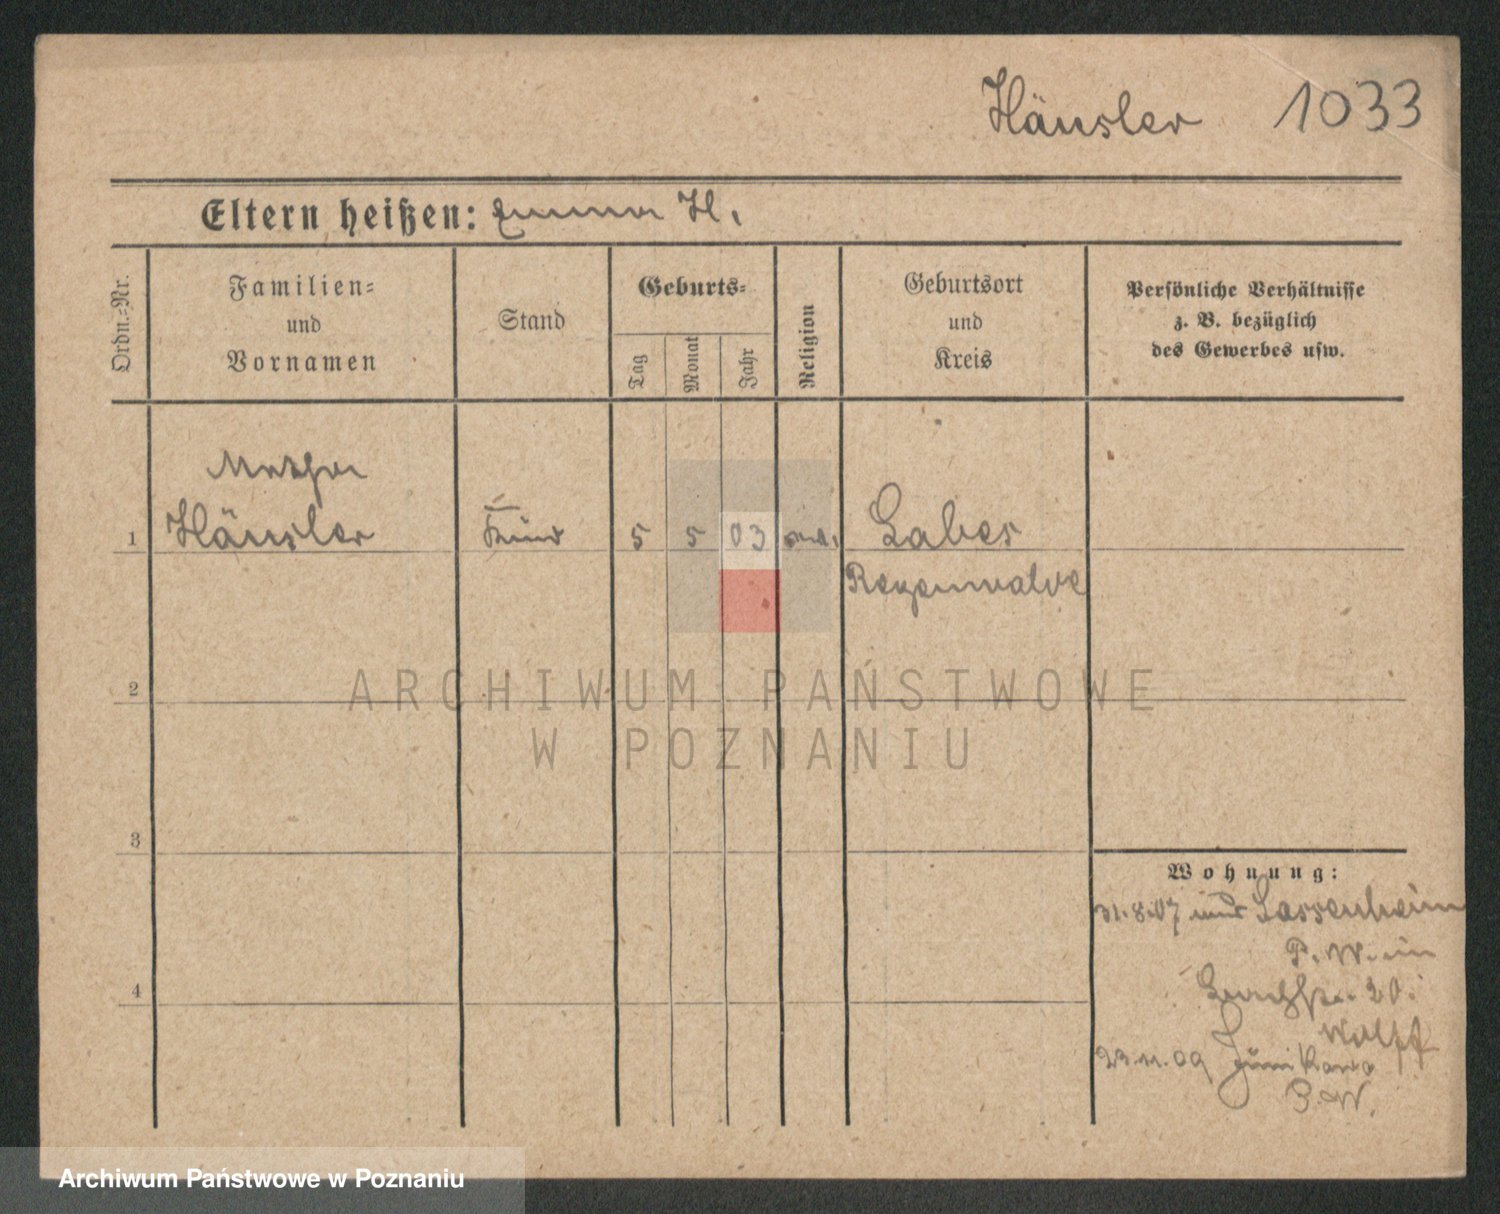 Häusler 1033
Eltern heißen: Emma H.
Ordn.-Nr.
Familien-
und
Vornamen
Stand
Geburts-
Tag
Monat
Jahr
Religion
Geburtsort
und
Kreis
Persönliche Verhältnisse
z. B. bezüglich
des Gewerbes usw.
1
Häusler
Kind
5 5 03
Labes
Regenwalde
2
ARCHIWUM PAŃSTWOWE
W POZNANIU
3
Wohnung:
31.8.07 Sassenheim
4
20.
Wolff
23.11.09 Junikowo
P.W.
Archiwum Państwowe w Poznaniu